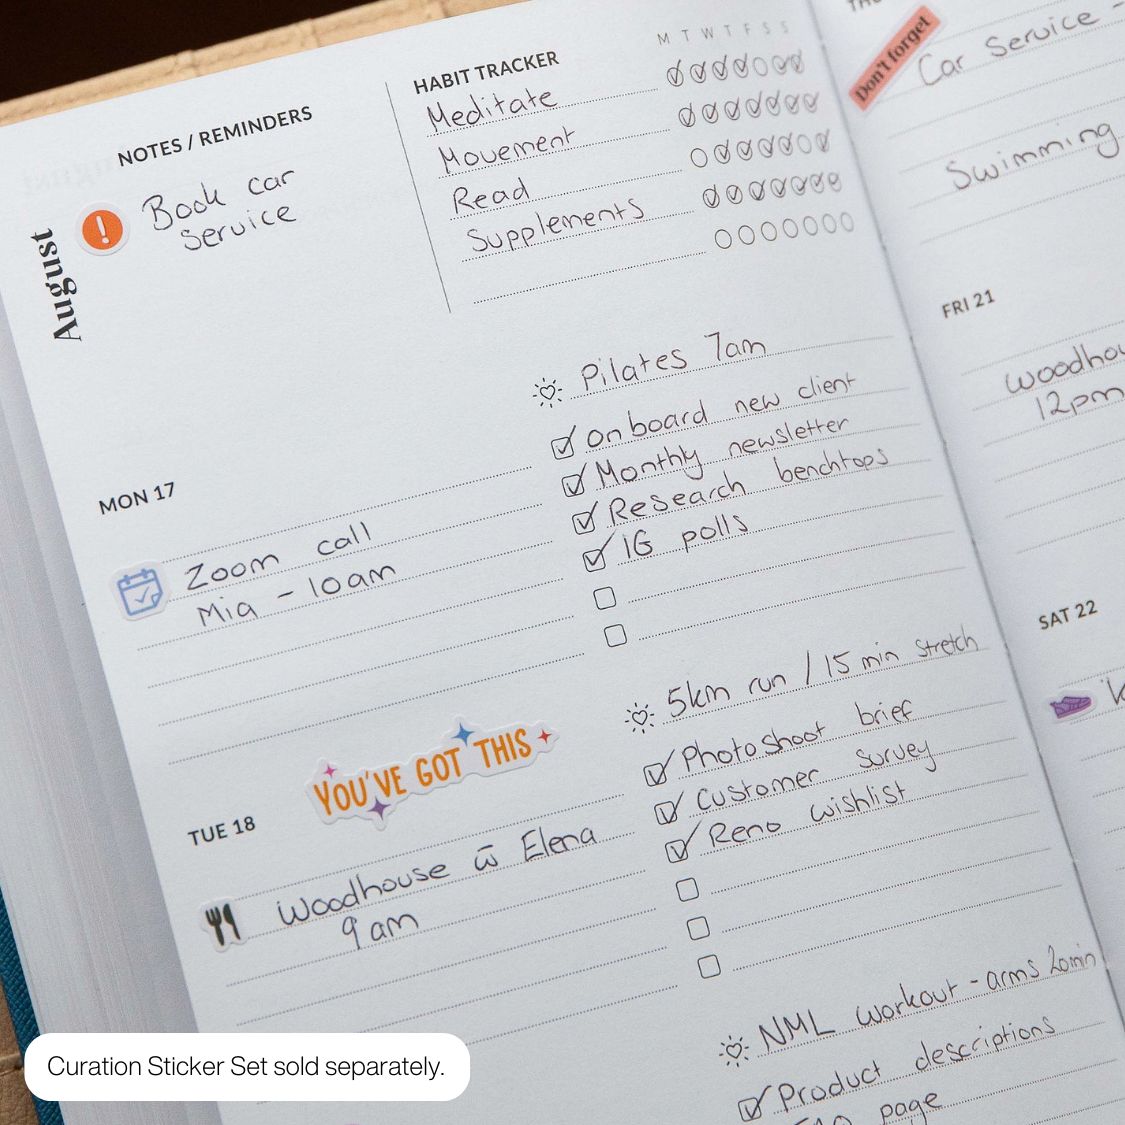 August
NOTES / REMINDERS
!
Book car
service
HABIT TRACKER
M T W T F S S
Meditate
Movement
Read
Supplements
MON 17
Zoom call
Mia - 10am
Pilates 7am
Onboard new client
Monthly newsletter
Research benchtops
IG polls
YOU'VE GOT THIS
TUE 18
Woodhouse w̄ Elena
9am
5km run / 15 min stretch
Photoshoot brief
Customer survey
Reno wishlist
NML workout - arms 20min
Product descriptions
page
Don't forget
Car Service -
Swimming
FRI 21
12pm
SAT 22
Curation Sticker Set sold separately.